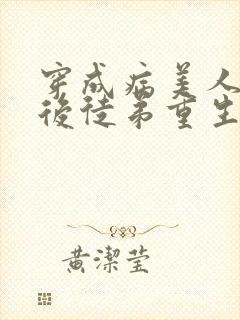 穿成病美人
後徒弟重生
黃潔瑩